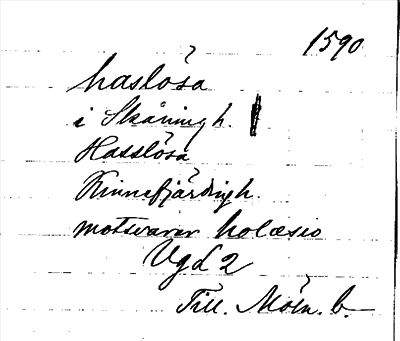 1590
haslösa
i Skåningh.
Hasslösa
Kinnefjärdingh.
motsvarar holæsio
Vgd 2
Till. Möln. b.